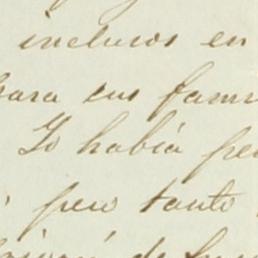 inclusos en
para sus fami
Yo había pe
pero tanto
de